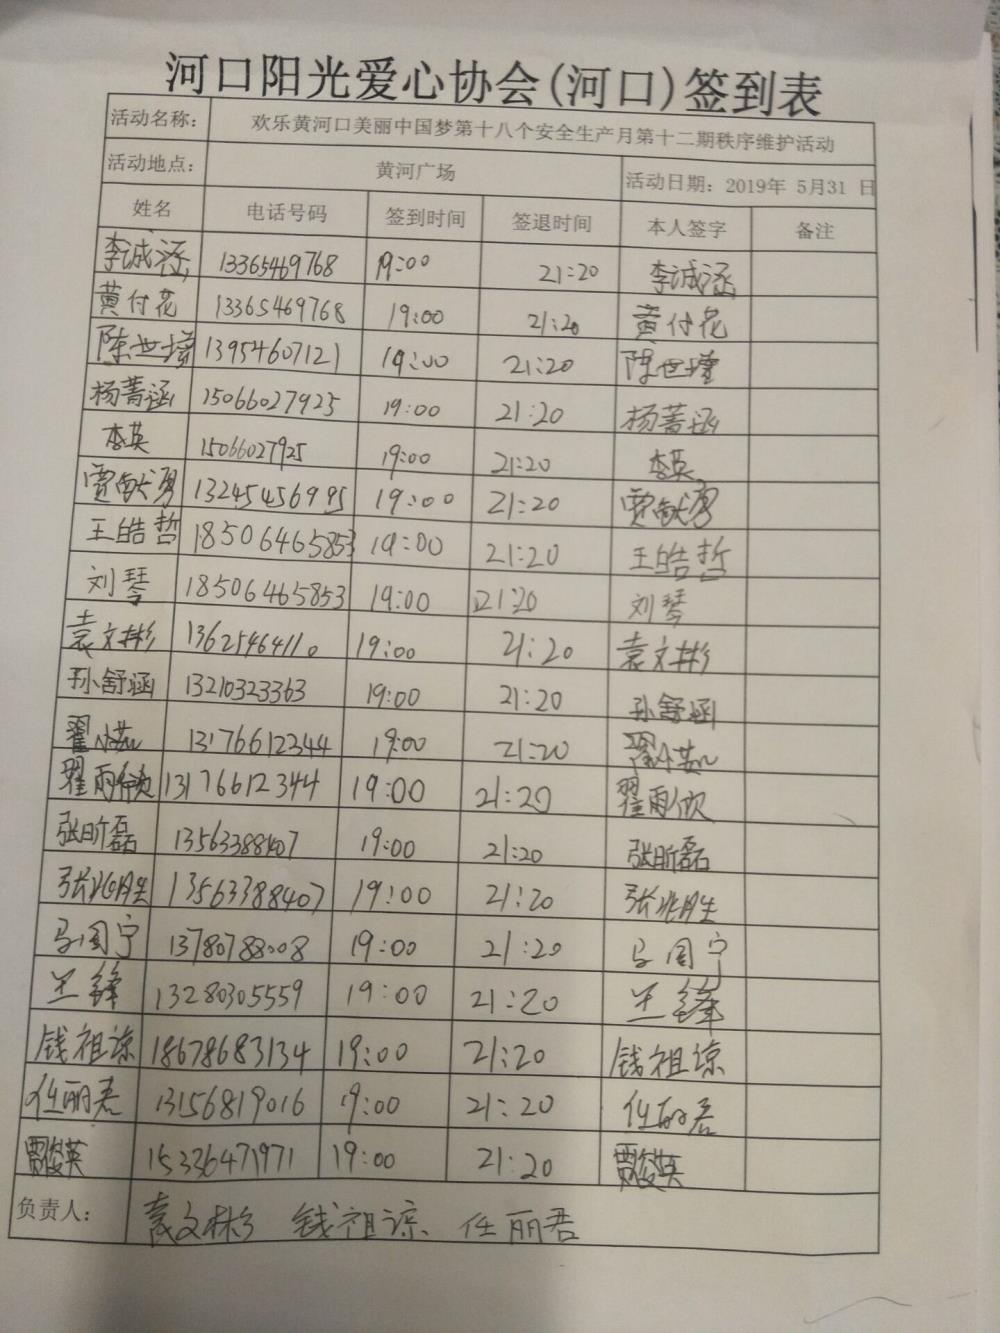 河口阳光爱心协会(河口)签到表
活动名称: 欢乐黄河口美丽中国梦第十八个安全生产月第十二期秩序维护活动
活动地点: 黄河广场 活动日期: 2019年 5月31 日
姓名 电话号码 签到时间 签退时间 本人签字 备注
李诚涵 13365469768 19:00 21:20 李诚涵
黄付花 13365469768 19:00 21:20 黄付花
陈世璋 13954607121 19:00 21:20 陈世璋
杨菁涵 15066027925 19:00 21:20 杨菁涵
李英 15066027925 19:00 21:20 李英
贾献勇 13245456995 19:00 21:20 贾献勇
王皓哲 18506465853 19:00 21:20 王皓哲
刘琴 18506465853 19:00 21:20 刘琴
袁文彬 13621464110 19:00 21:20 袁文彬
孙舒涵 13210323363 19:00 21:20 孙舒涵
翟小茹 13176612344 19:00 21:20 翟小茹
翟雨欣 13176612344 19:00 21:20 翟雨欣
张昕磊 13563388407 19:00 21:20 张昕磊
张兆胜 13563388407 19:00 21:20 张兆胜
马国宁 13780788008 19:00 21:20 马国宁
王锋 13280305559 19:00 21:20 王锋
钱祖谅 18678683134 19:00 21:20 钱祖谅
任丽君 13156819016 19:00 21:20 任丽君
贾俊英 15336471971 19:00 21:20 贾俊英
负责人: 袁文彬 钱祖谅 任丽君